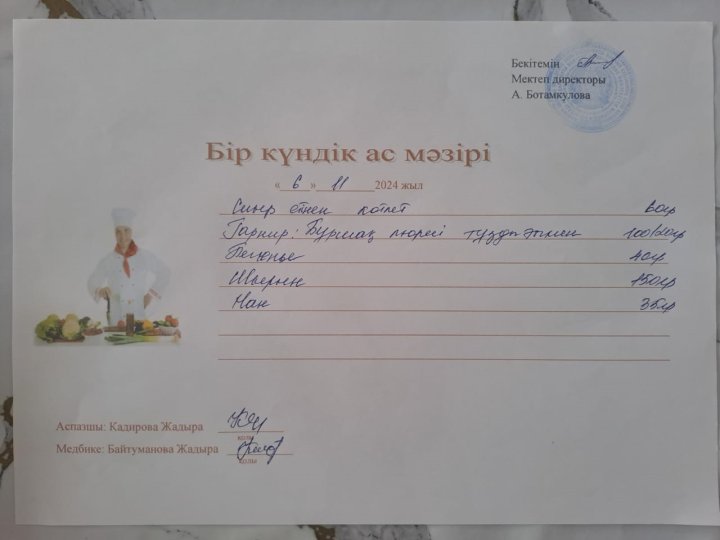 Бекітемін
Мектеп директоры
А. Ботамкулова
Бір күндік ас мәзірі
« 6 » 11 2024 жыл
Сиыр етнен котлет 60гр
Гарнир: Бұршақ пюресі тұздықпен 100/20гр
Печенье 40гр
Шырын 150гр
Нан 35гр
Аспазшы: Кадирова Жадыра
қолы
Медбике: Байтуманова Жадыра
қолы